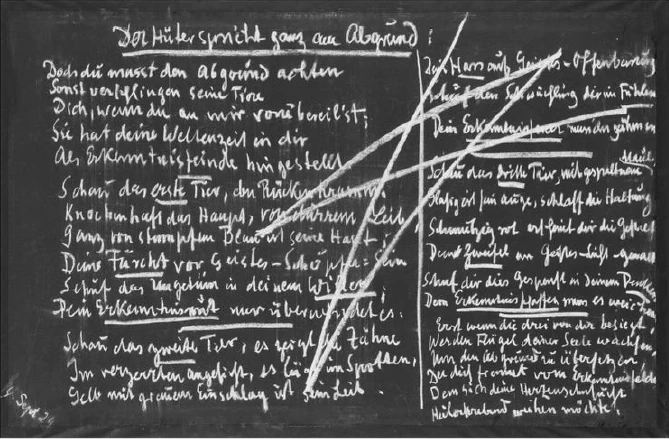 Der Hüter spricht ganz am Abgrund:
Doch du musst den Abgrund achten
Sonst verschlingen seine Tiere
Dich, wenn du an mir vorübereil'st;
Sie hat deine Weltenzeit in dir
Als Erkenntnisfeinde hingestellt.
Schau das erste Tier, den Rücken krumm
Knochenhaft das Haupt, von dürrem Leib,
Ganz von stumpfem Blau ist seine Haut;
Deine Furcht vor Geistes-Schöpfer-Sein
Schuf das Ungetüm in deinem Willen;
Dein Erkenntnismut nur überwindet es.
Schau das zweite Tier, es zeigt die Zähne
Im verzerrten Angesicht, es lügt im Spotten,
Gelb mit grauem Einschlag ist sein Leib.
Dein Hass auf Geistes-Offenbarung
Schuf den Schwächling dir im Fühlen
Dein Erkenntnisfeuer muss ihn zähmen
Schau das dritte Tier, mit gespaltnem
Maul,
Glasig ist sein Auge, schlaff die Haltung
Schmutzig rot erscheint dir die Gestalt
Dein Zweifel an Geistes-Licht-Gewalt
Schuf dir dies Gespenst in deinem Denken
Dem Erkenntnisschaffen muss es weichen
Erst wenn die drei von dir besiegt
Werden Flügel deiner Seele wachsen
Um den Abgrund zu übersetzen
Der dich trennet vom Erkenntnisfelde
Dem sich deine Herzenssehnsucht
Heilerstrebend weihen möchte.
Sept 24